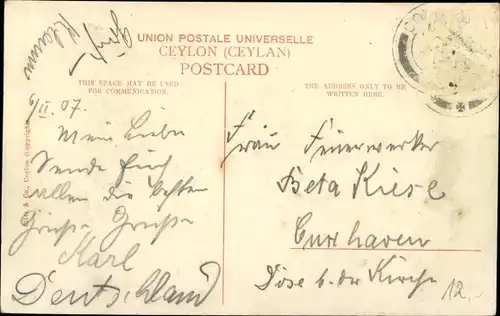 UNION POSTALE UNIVERSELLE
CEYLON (CEYLAN)
POSTCARD
THIS SPACE MAY BE USED
FOR COMMUNICATION.
THE ADDRESS ONLY TO BE
WRITTEN HERE.
6/II. 07.
Meine Liebe
Sende Euch
allen die besten
Grüsse Grüsse
Karl
Deutschland
Frau Feuerwerker
Beta Kiese
Cuxhaven
Döse b. der Kirche
12.-
& Co., Ceylon (Copyright)